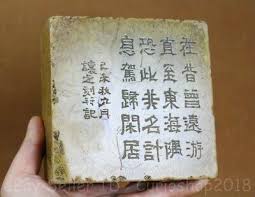 在昔曾遠游
直至東海隅
恐此非名計
息駕歸閑居
秋九月
讓之刻記
eBay seller ID : curioshop2018